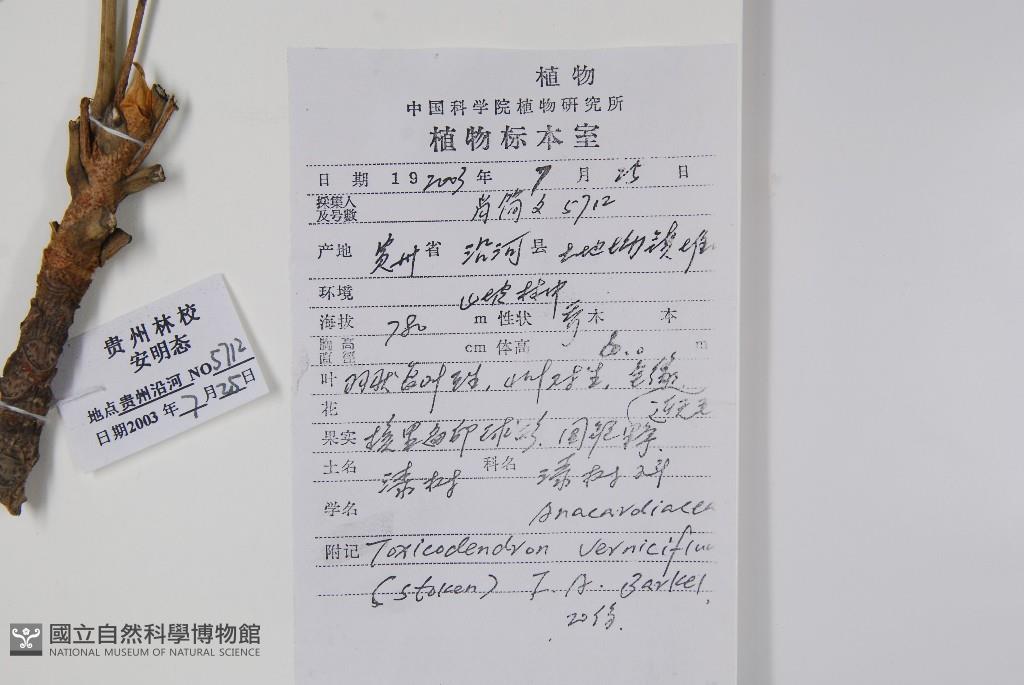 植物
中国科学院植物研究所
植物标本室
日 期 19 2003 年 7 月 25 日
採集人
及号数 肖简文 5712
产地 贵州 省 沿河 县 土地坳镇
环境 山坡林中
海拔 780 m 性状 乔木 本
胸高
直径 cm 体高 6.0 m
叶 羽状
花
果实 球形
土名 漆树 科名 漆树科
学名 Anacardiacea
附记 Toxicodendron verniciflu
(Stoken) F. A. Barkel.
20份.
贵州林校
安明态
地点贵州沿河 NO5712
日期2003 年 7 月 25 日
國立自然科學博物館
NATIONAL MUSEUM OF NATURAL SCIENCE